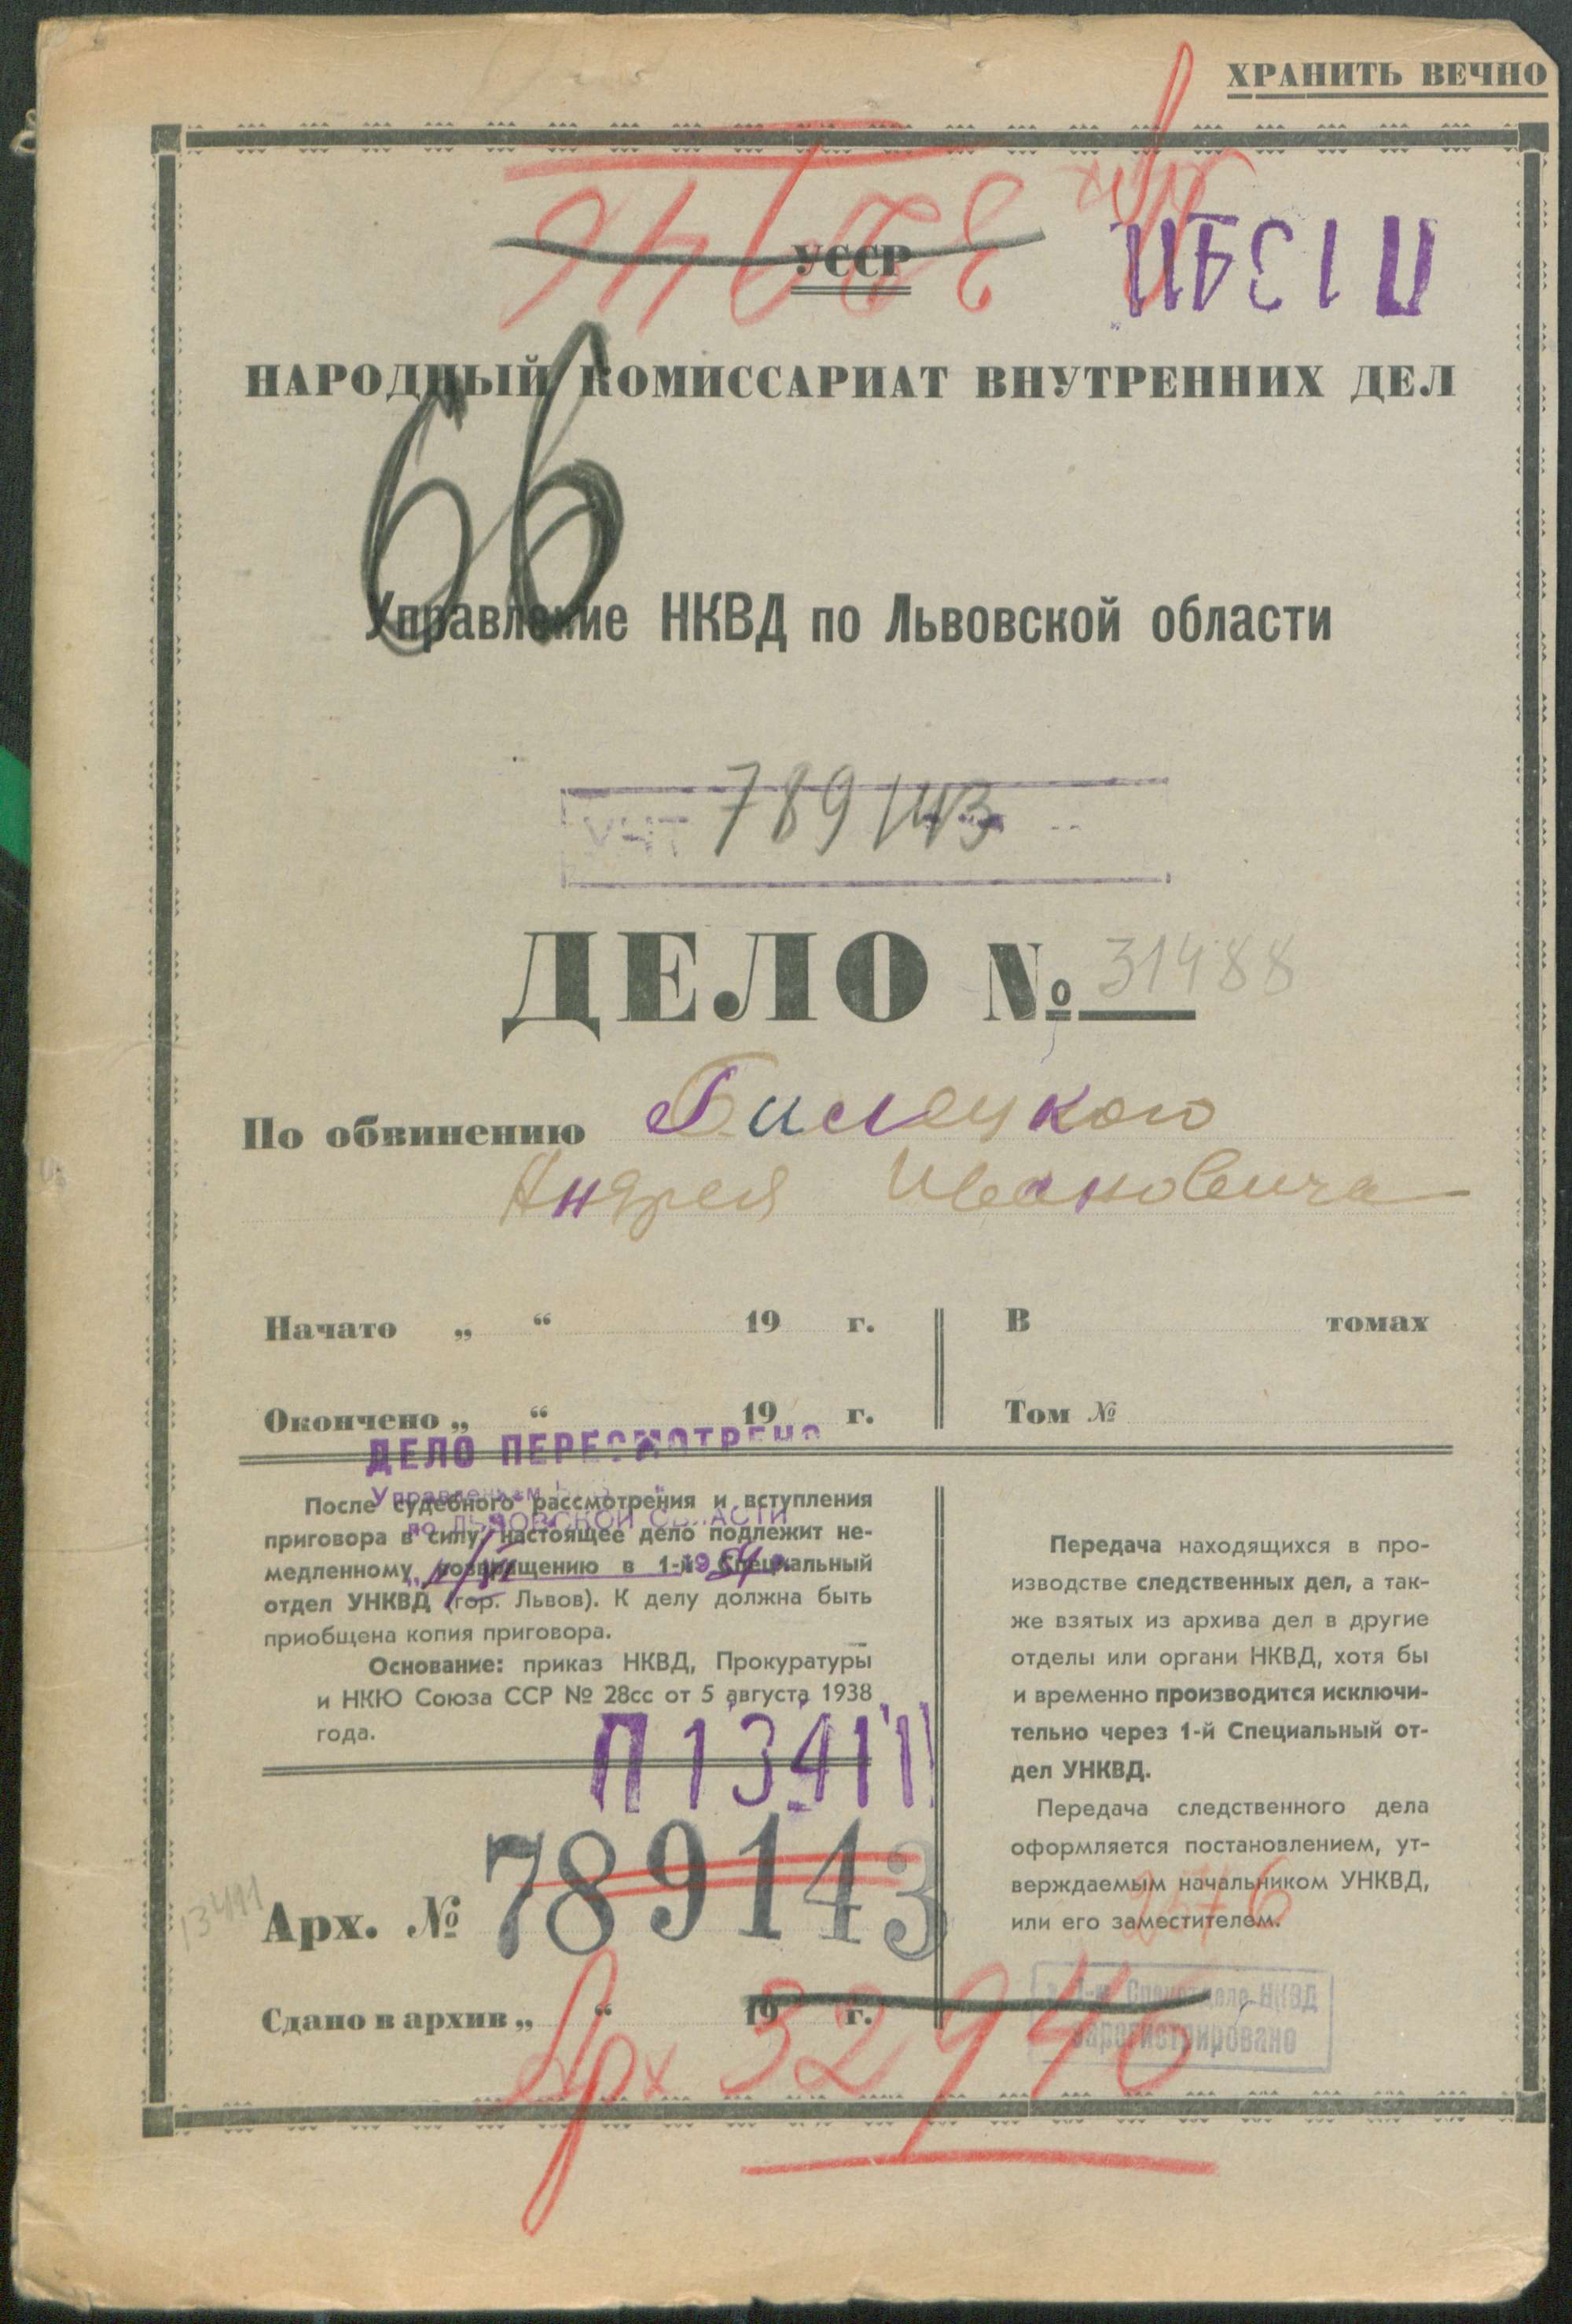 ХРАНИТЬ ВЕЧНО
Арх 32946
УССР
П13411
НАРОДНЫЙ КОМИССАРИАТ ВНУТРЕННИХ ДЕЛ
66
Управление НКВД по Львовской области
789143
ДЕЛО № 31488
По обвинению Билецкого
Андрея Ивановича
Начато „ “ 19 г.
В томах
Окончено „ “ 19 г.
Том №
ДЕЛО ПЕРЕСМОТРЕНО
Управлением
по ЛЬВОВСКОЙ ОБЛАСТИ
После судебного рассмотрения и вступления
приговора в силу, настоящее дело подлежит не-
медленному возвращению в 1-й Специальный
отдел УНКВД (гор. Львов). К делу должна быть
приобщена копия приговора.
Основание: приказ НКВД, Прокуратуры
и НКЮ Союза ССР № 28сс от 5 августа 1938
года.
П13411
Арх. № 789143
13411
Сдано в архив „ “ 19 г.
Арх 32946
Передача находящихся в про-
изводстве следственных дел, а так-
же взятых из архива дел в другие
отделы или органи НКВД, хотя бы
и временно производится исключи-
тельно через 1-й Специальный от-
дел УНКВД.
Передача следственного дела
оформляется постановлением, ут-
верждаемым начальником УНКВД,
или его заместителем.
Спецотделе НКВД
Зарегистрировано